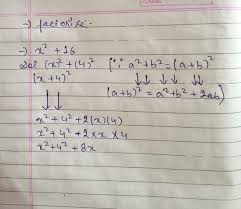 → factorize:-
→ x² + 16
(x² + (4)² [∵ a² + b² = (a+b)²
(x + 4)²
(a+b)² = a² + b² + 2ab)
x² + 4² + 2(x)(4)
x² + 4² + 2 × x × 4
x² + 4² + 8x